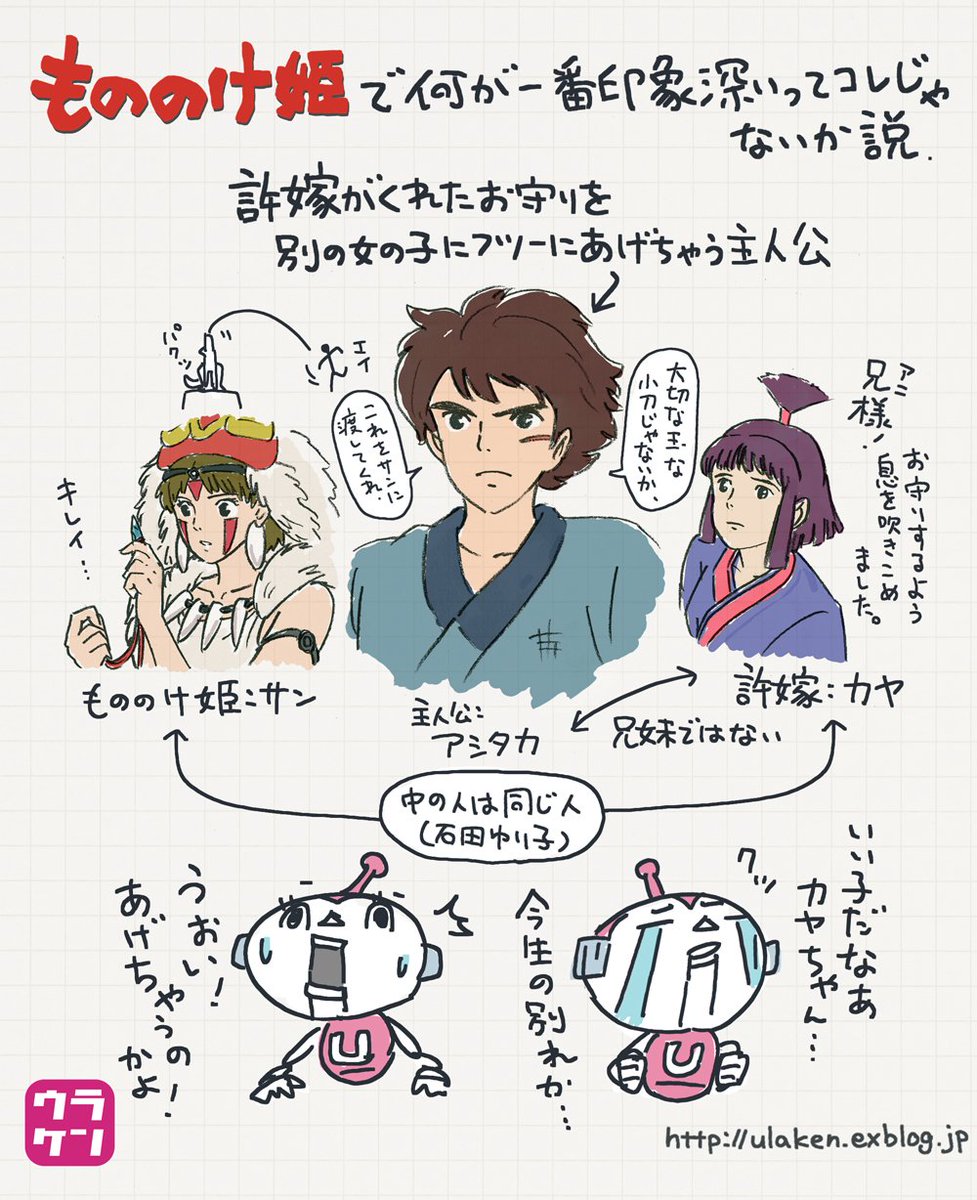 もののけ姫で何が一番印象深いってコレじゃ
ないか説.
許嫁がくれたお守りを
別の女の子にフツーにあげちゃう主人公
パクッ
エイ
これをサンに
渡してくれ
大切な玉な
小刀じゃないか、
アニ
兄様!
お守りするよう
息を吹きこめ
ました。
キレイ…
もののけ姫:サン
主人公:
アシタカ
許嫁:カヤ
兄妹ではない
中の人は同じ人
(石田ゆり子)
うおい!
あげちゃうの!
かよ
いい子だなあ
カヤちゃん…
クッ
今生の別れか…
ウラ
ケン
http://ulaken.exblog.jp
U
U